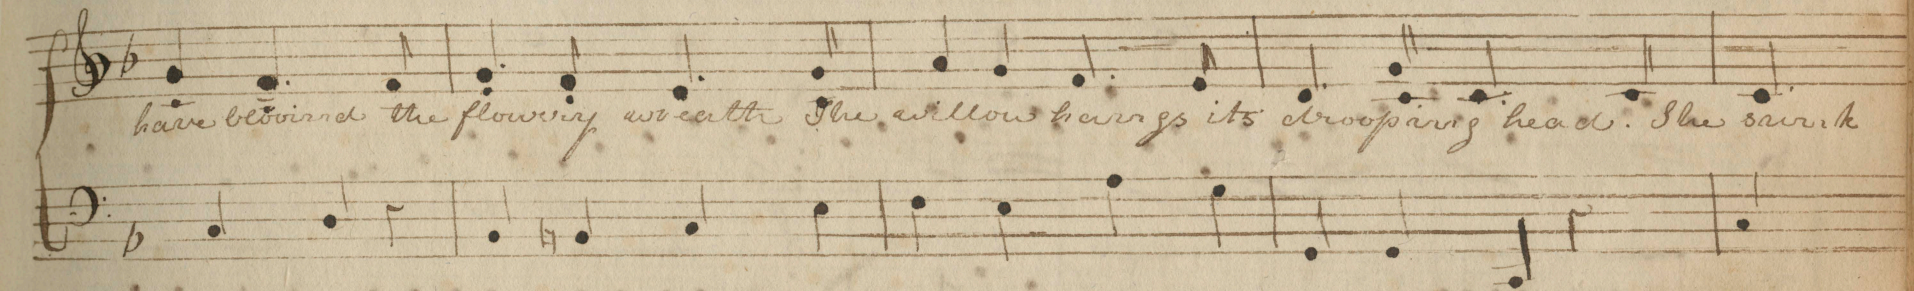 have blooind the flowery wreath The willow hangs its drooping head. She sunk